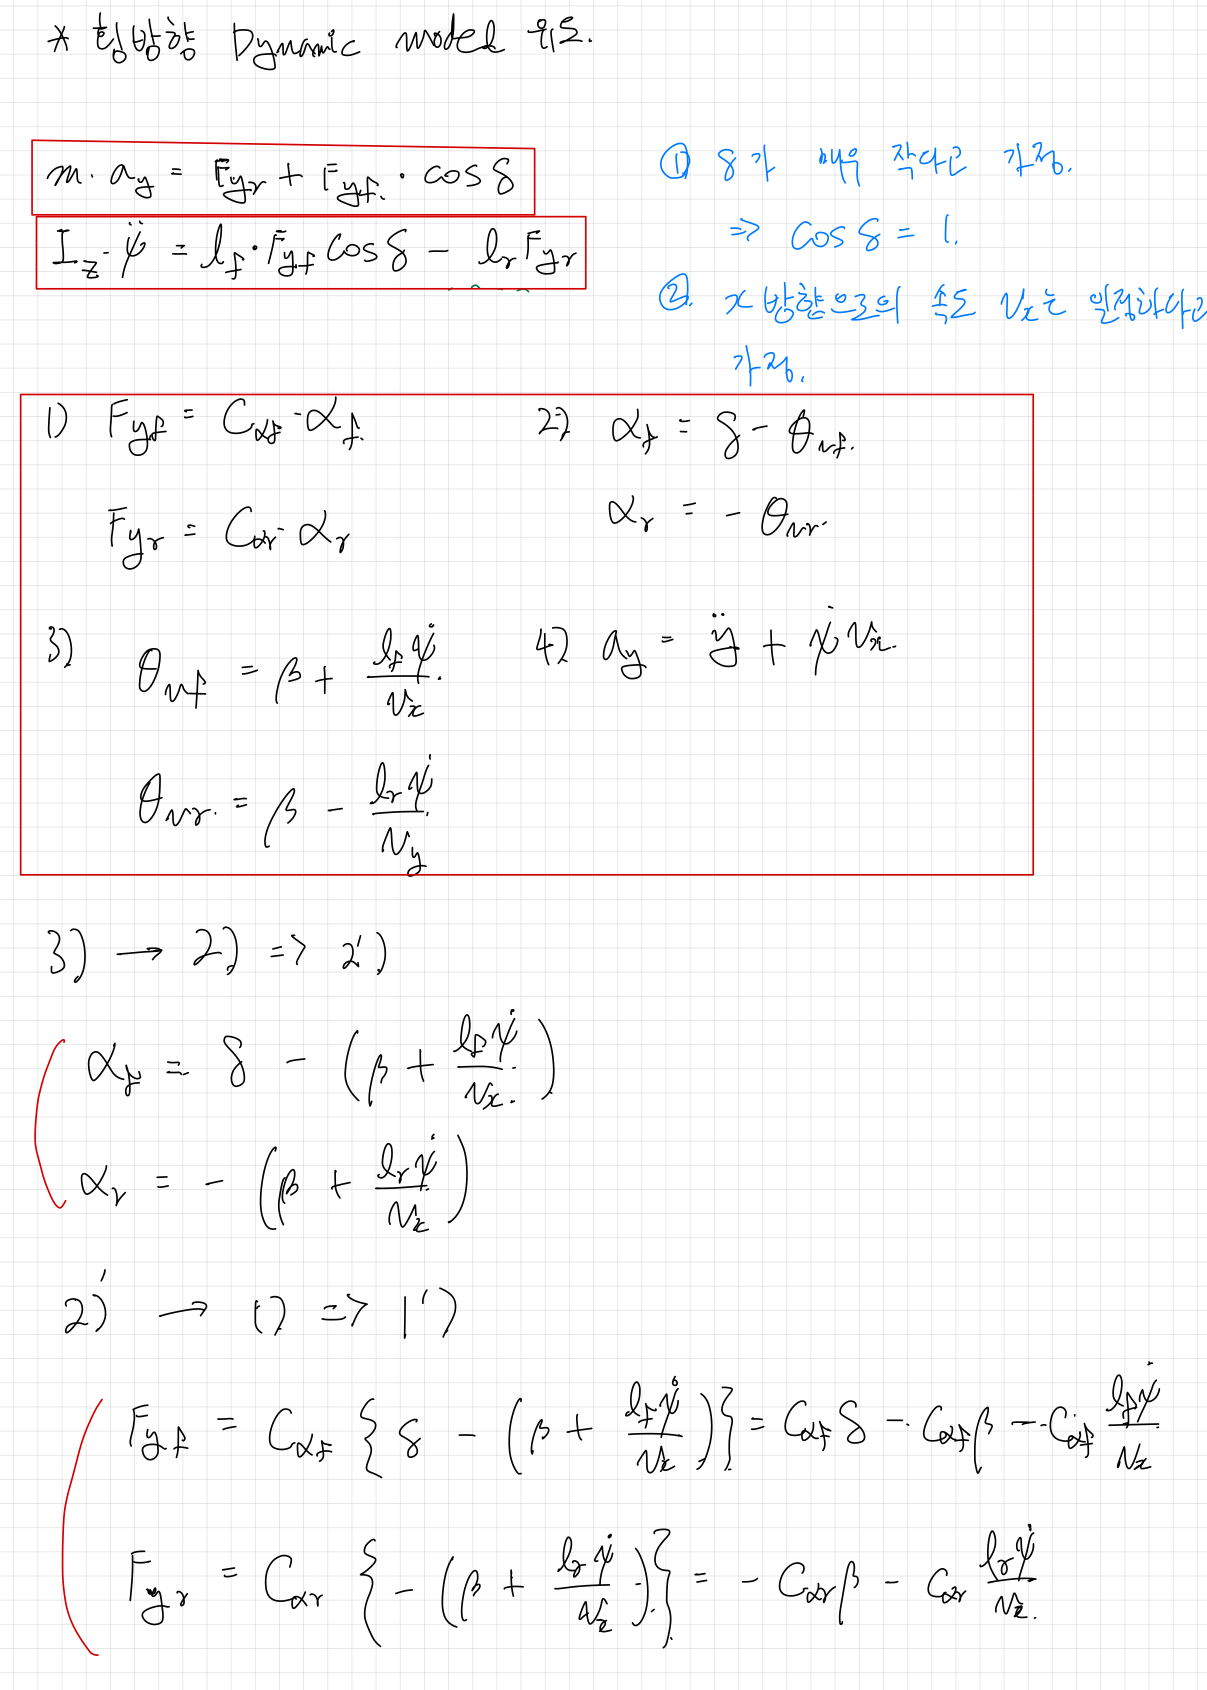 * 횡방향 Dynamic model 유도.
m · a_y = F_yr + F_yf · cos δ
I_z · ψ̈ = l_f · F_yf cos δ − l_r F_yr
① δ가 매우 작다고 가정.
=> cos δ = 1.
② x방향으로의 속도 v_x는 일정하다고
가정.
1) F_yf = C_αf · α_f. 2) α_f = δ − θ_vf.
F_yr = C_αr · α_r α_r = − θ_vr.
3) θ_vf = β + (l_f ψ̇)/(v_x) 4) a_y = ÿ + ψ̇ v_x.
θ_vr. = β − (l_r ψ̇)/(v_y)
3) → 2) => 2')
α_f = δ − (β + (l_f ψ̇)/(v_x.))
α_r = − (β + (l_r ψ̇)/(v_x))
2)' → 1) => 1')
F_yf = C_αf {δ − (β + (l_f ψ̇)/(v_x))} = C_αf δ − C_αf β − C_αf (l_f ψ̇)/(v_x)
F_yr = C_αr {− (β + (l_r ψ̇)/(v_x))} = − C_αr β − C_αr (l_r ψ̇)/(v_x.)